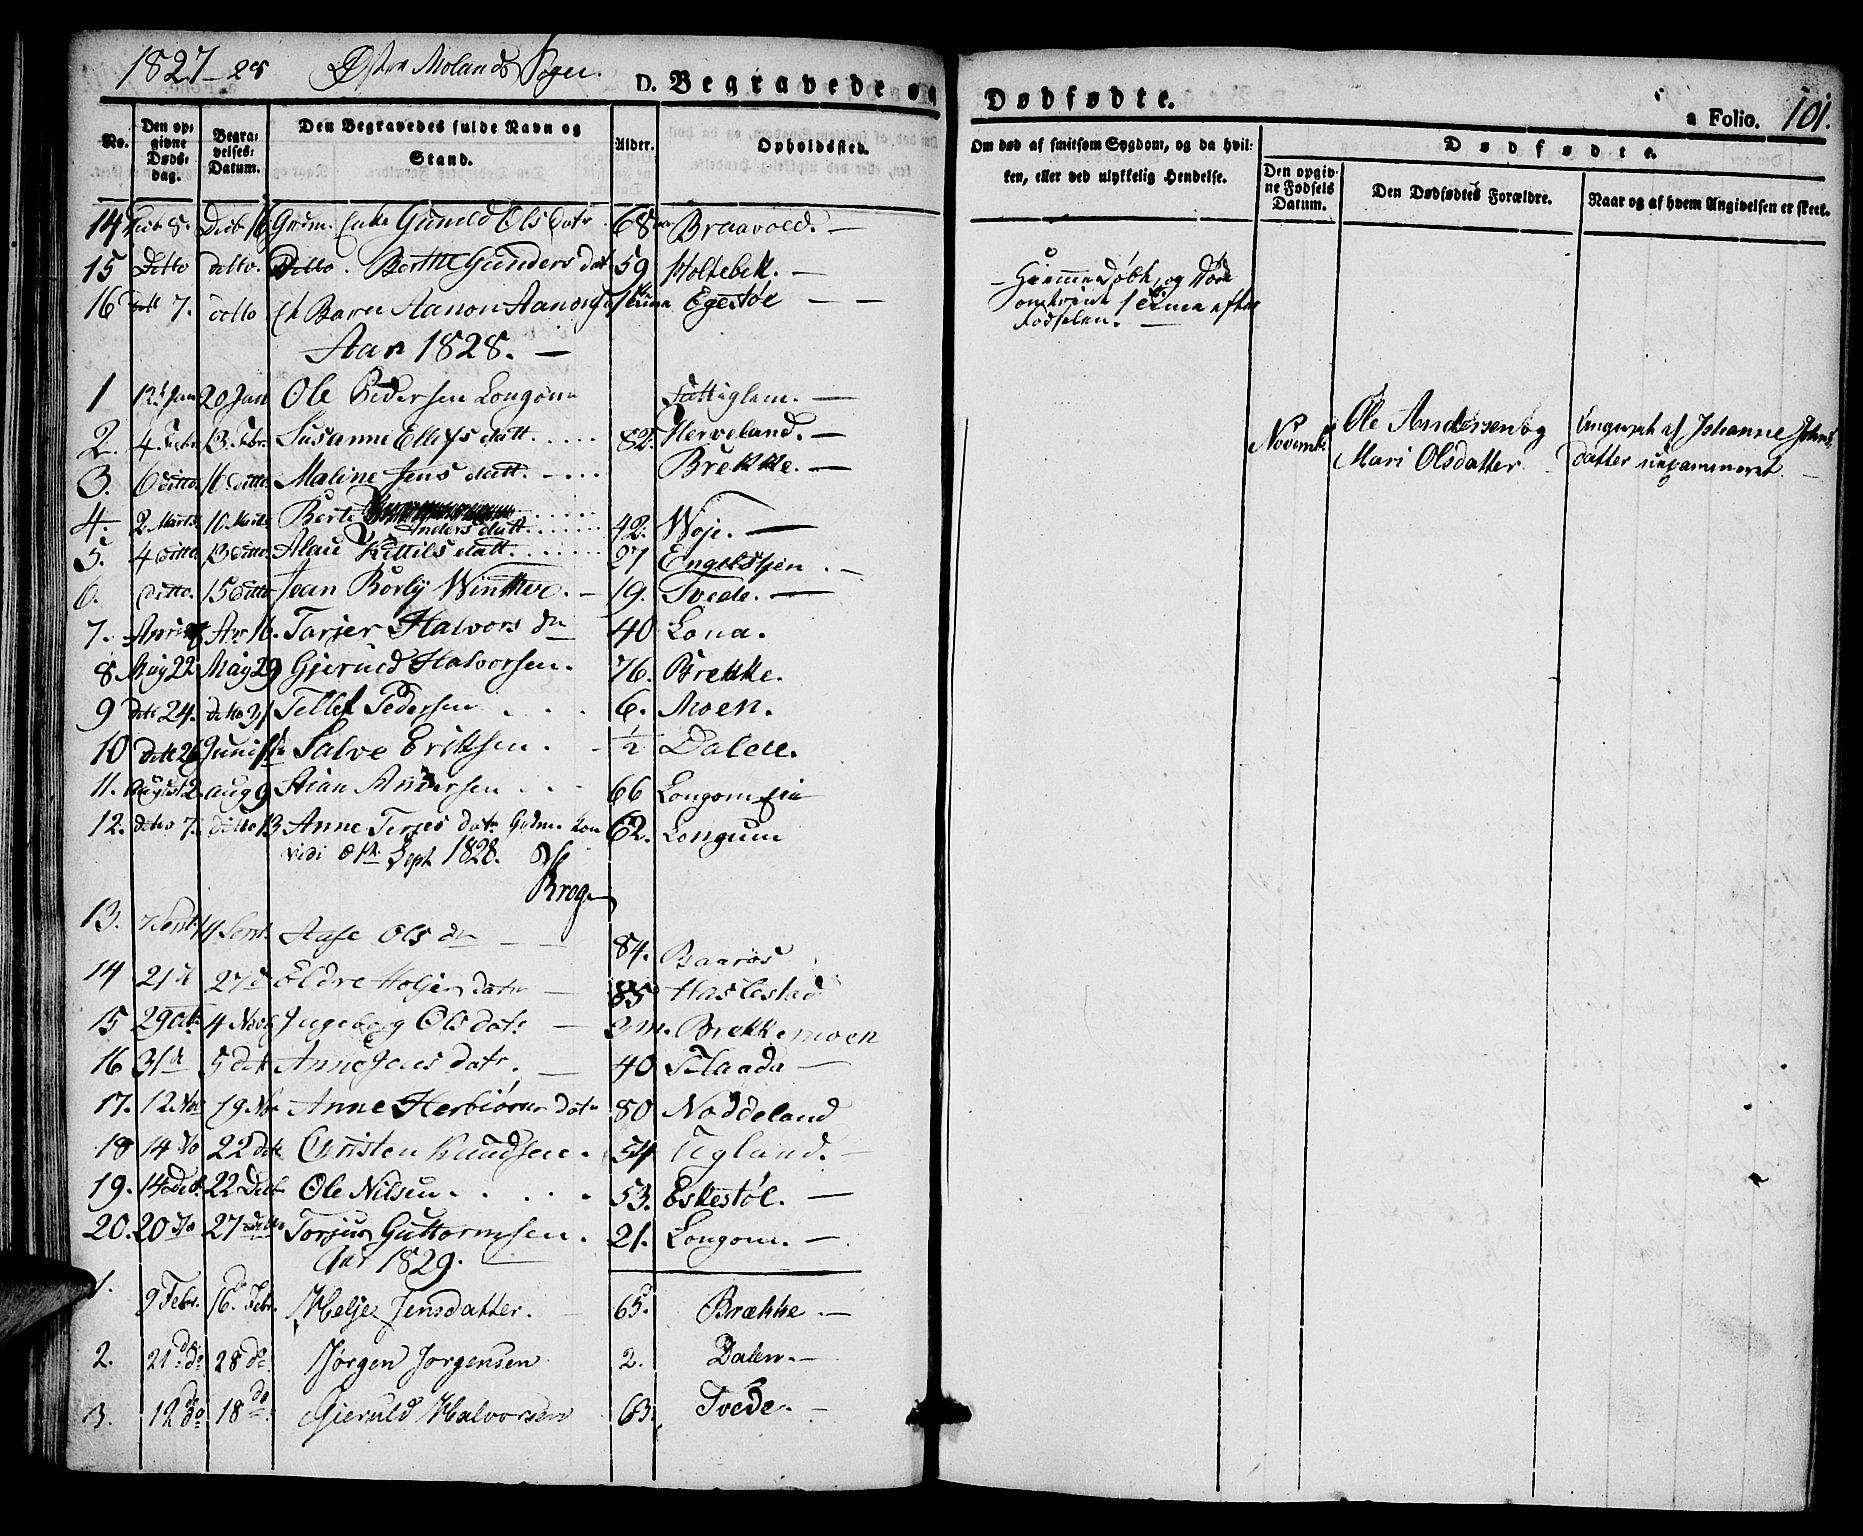 1827-28 Østre Molands Sogn. D. Begravede og Dødfødte. a Folio. 101.
No. Den opgivne Dødsdag. Begravelses Datum. Den Begravedes fulde Navn og Stand. Alder. Opholdssted. Om død af smitsom Sygdom, og da hvilken, eller ved ulykkelig Hendelse. Dødfødte. Den opgivne Fødsels Datum. Den Dødfødtes Forældre. Naar og af hvem Angivelsen er skeet.
14 Decb 8. Decb 16 Gardm. Enke Gunild Olsdatr 68 Braavold. —
15 Ditto ditto. Ditto. Berthe Gunders dat 59 Holtebek. —
16 dett 7. ditto Et Barn Aanon Aanons 1 Time Egestøl — —
Hiemmedøbt, og døde
omtrent 1 Time efter
Fødselen. —
Aar 1828. —
1 12 Jan 20 Jan Ole Pedersen Longum Fattiglem. —
2. 4. Febr 13. Febr. Susanne Ellefs datt. 82. Herveland. —
3. 6 ditto. 16 ditto Maline Jens datt. Brekke. —
Novemb Ole Andersen og
Mari Olsdatter.
Angivet af Johanne Johns
datter
4. 2 Marts 10 Marts Berte Anders datt. 42. Woje. —
5. 4 ditto 13 ditto Alau Kittils datt. 27 Engelstjen. —
6. ditto. 15 ditto Jean Børly Winther. — 19. Tvede. —
7. April Apr 16. Tarjer Halvors dn 40 Lona.
8 May 22 May 29 Gjeruld Halvorsen. 76. Brekke.
9 dett 24. ditto 31 Tellef Pedersen 6. Moen.
10 dett 26 Junii Salve Eriksen. 1/2 Dalene.
11. August 2. Aug 9 Stian Andersen 66 Longom
12. ditto 7. ditto 13 Anne Terjes datr Grdm. Kon 62. Longum
vidi Sept 1828.
Krog
13. 7 Sept 14 Sept. Aase Ols dn — 84. Baaros
14 21 d 27 d Eldre Holjer datr — 85 Haslestad
15 29 Octb 4 Novb Ingeborg Ols datr — 3 m. Brekkemoen
16 31 d 5 dett Anne Jens datr. — 40 Flaada —
17. 12 Nov 19 Nov Anne Herbiørns datr 80 Noddeland
18 14 do 22 dett Christen Knudsen. 54 Tegland. —
19. 14 Decb. 22 Decb Ole Nilsen. 53. Eskestøl. —
20. 20 do 27 ditto Torjus Guttormsen. 21. Longom. —
Aar 1829. —
1. 9 Febr. 16. Febr. Helje Jensdatter. 65. Brække. —
2. 21 do 28 do Jørgen Jørgensen 2. Dalen. —
3. 12 do 18 do. Gieruld Halvorsen 63. Tvede. —